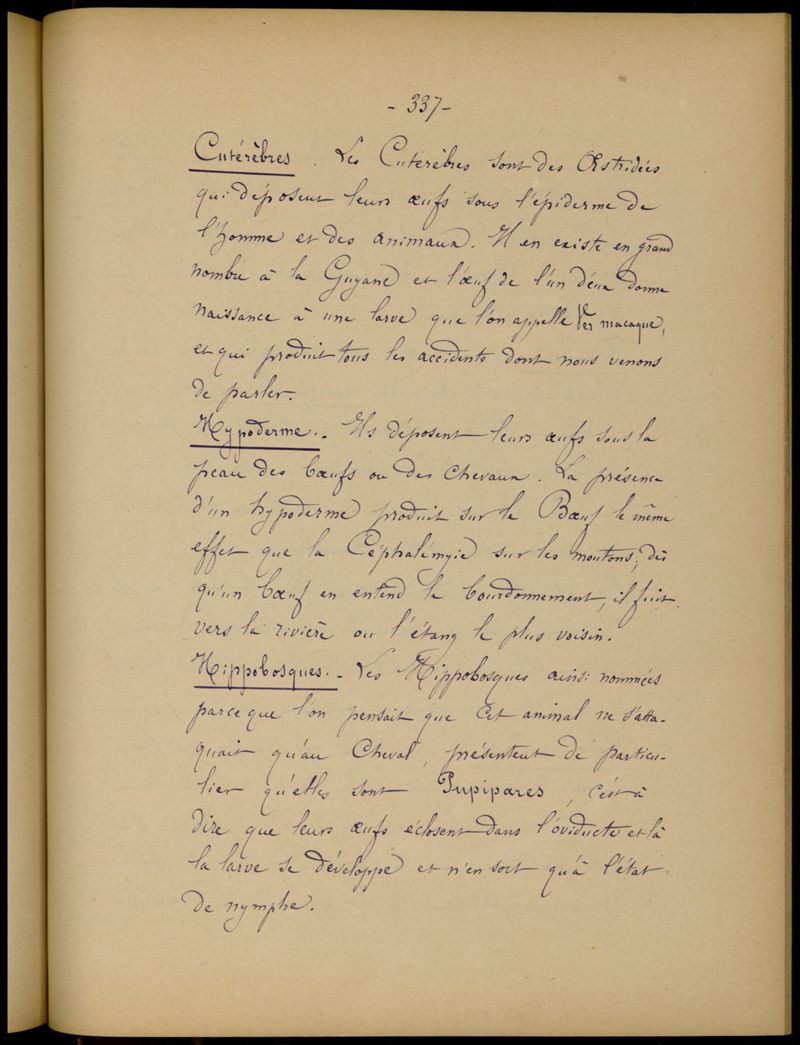 - 337 -
Cutérèbres. Les Cutérèbres sont des Œstridées
qui déposent leurs œufs sous l'épiderme de
l'homme et des animaux. Il en existe en grand
nombre à la Guyane et l'œuf de l'un d'eux donne
naissance à une larve que l'on appelle Ver macaque,
et qui produit tous les accidents dont nous venons
de parler.
Hypoderme. - Ils déposent leurs œufs sous la
peau des bœufs ou des chevaux. La présence
d'un hypoderme produit sur le Bœuf le même
effet que la Céphalémyie sur les moutons; dès
qu'un bœuf en entend le bourdonnement, il fuit
vers la rivière ou l'étang le plus voisin.
Hippobosques. - Les Hippobosques ainsi nommées
parce que l'on pensait que cet animal ne s'atta-
quait qu'au Cheval, présentent de particu-
lier qu'elles sont Pupipares, c'est à
dire que leurs œufs éclosent dans l'oviducte et là
la larve se développe et n'en sort qu'à l'état
de nymphe.